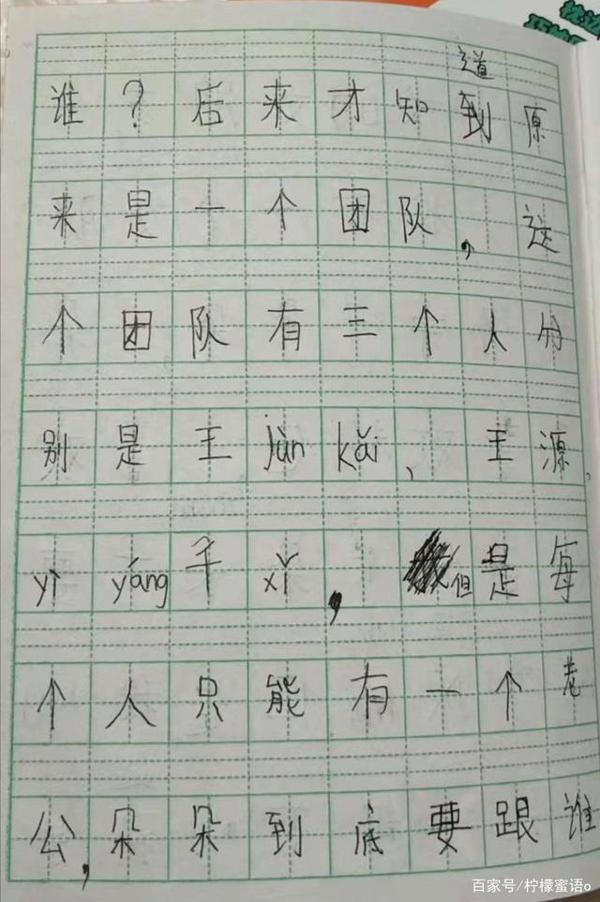 道
谁?后来才知到原
来是一个团队,这
个团队有三个人分
别是王jùn kǎi,王源,
yì yáng千xǐ,但是每
个人只能有一个老
公,朵朵到底要跟谁
百家号/柠檬蜜语o